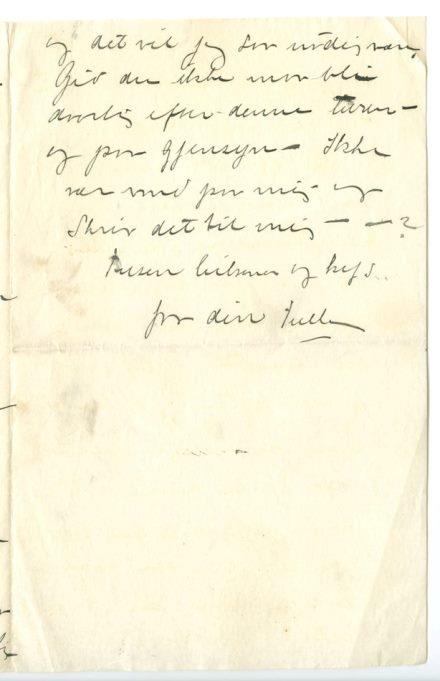 og det vil jeg saa nødig være,
Gid du ikke maa bli
daarlig efter denne turen —
og paa Gjensyn — Ikke
vær vond paa mig og
Skriv det til mig — — ?
Tusen hilsener og kys..
fra din Tulla